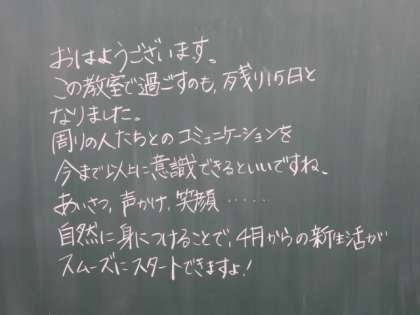 おはようございます。
この教室で過ごすのも、残り15日と
なりました。
周りの人たちとのコミュニケーションを
今まで以上に意識できるといいですね。
あいさつ、声かけ、笑顔……
自然に身につけることで、4月からの新生活が
スムーズにスタートできますよ!